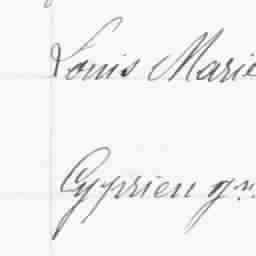 Louis Marie
Cyprien gn.